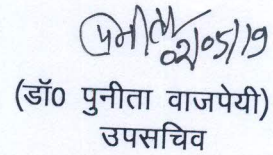 पुनीता
02/05/19
(डॉ0 पुनीता वाजपेयी)
उपसचिव